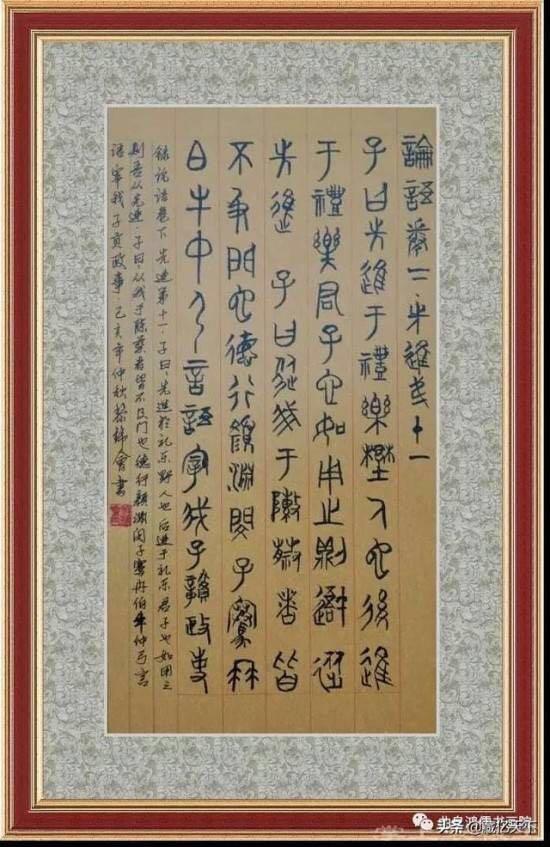 論語卷下·先進弟十一
子曰先進于禮樂野人也後進
于禮樂君子也如用之則吾從
先進 子曰從我于陳蔡者皆
不及門也德行顏淵閔子騫冉
白牛中弓言語宰我子贛政事
錄論語卷下先進第十一·子曰先進於礼乐野人也后進于礼乐君子也如用之
則吾从先進·子曰从我于陳蔡者皆不及门也德行顏渊闵子騫冉伯牛仲弓言
语宰我子貢政事·己亥年仲秋黎書
鸿儒书画院
头条